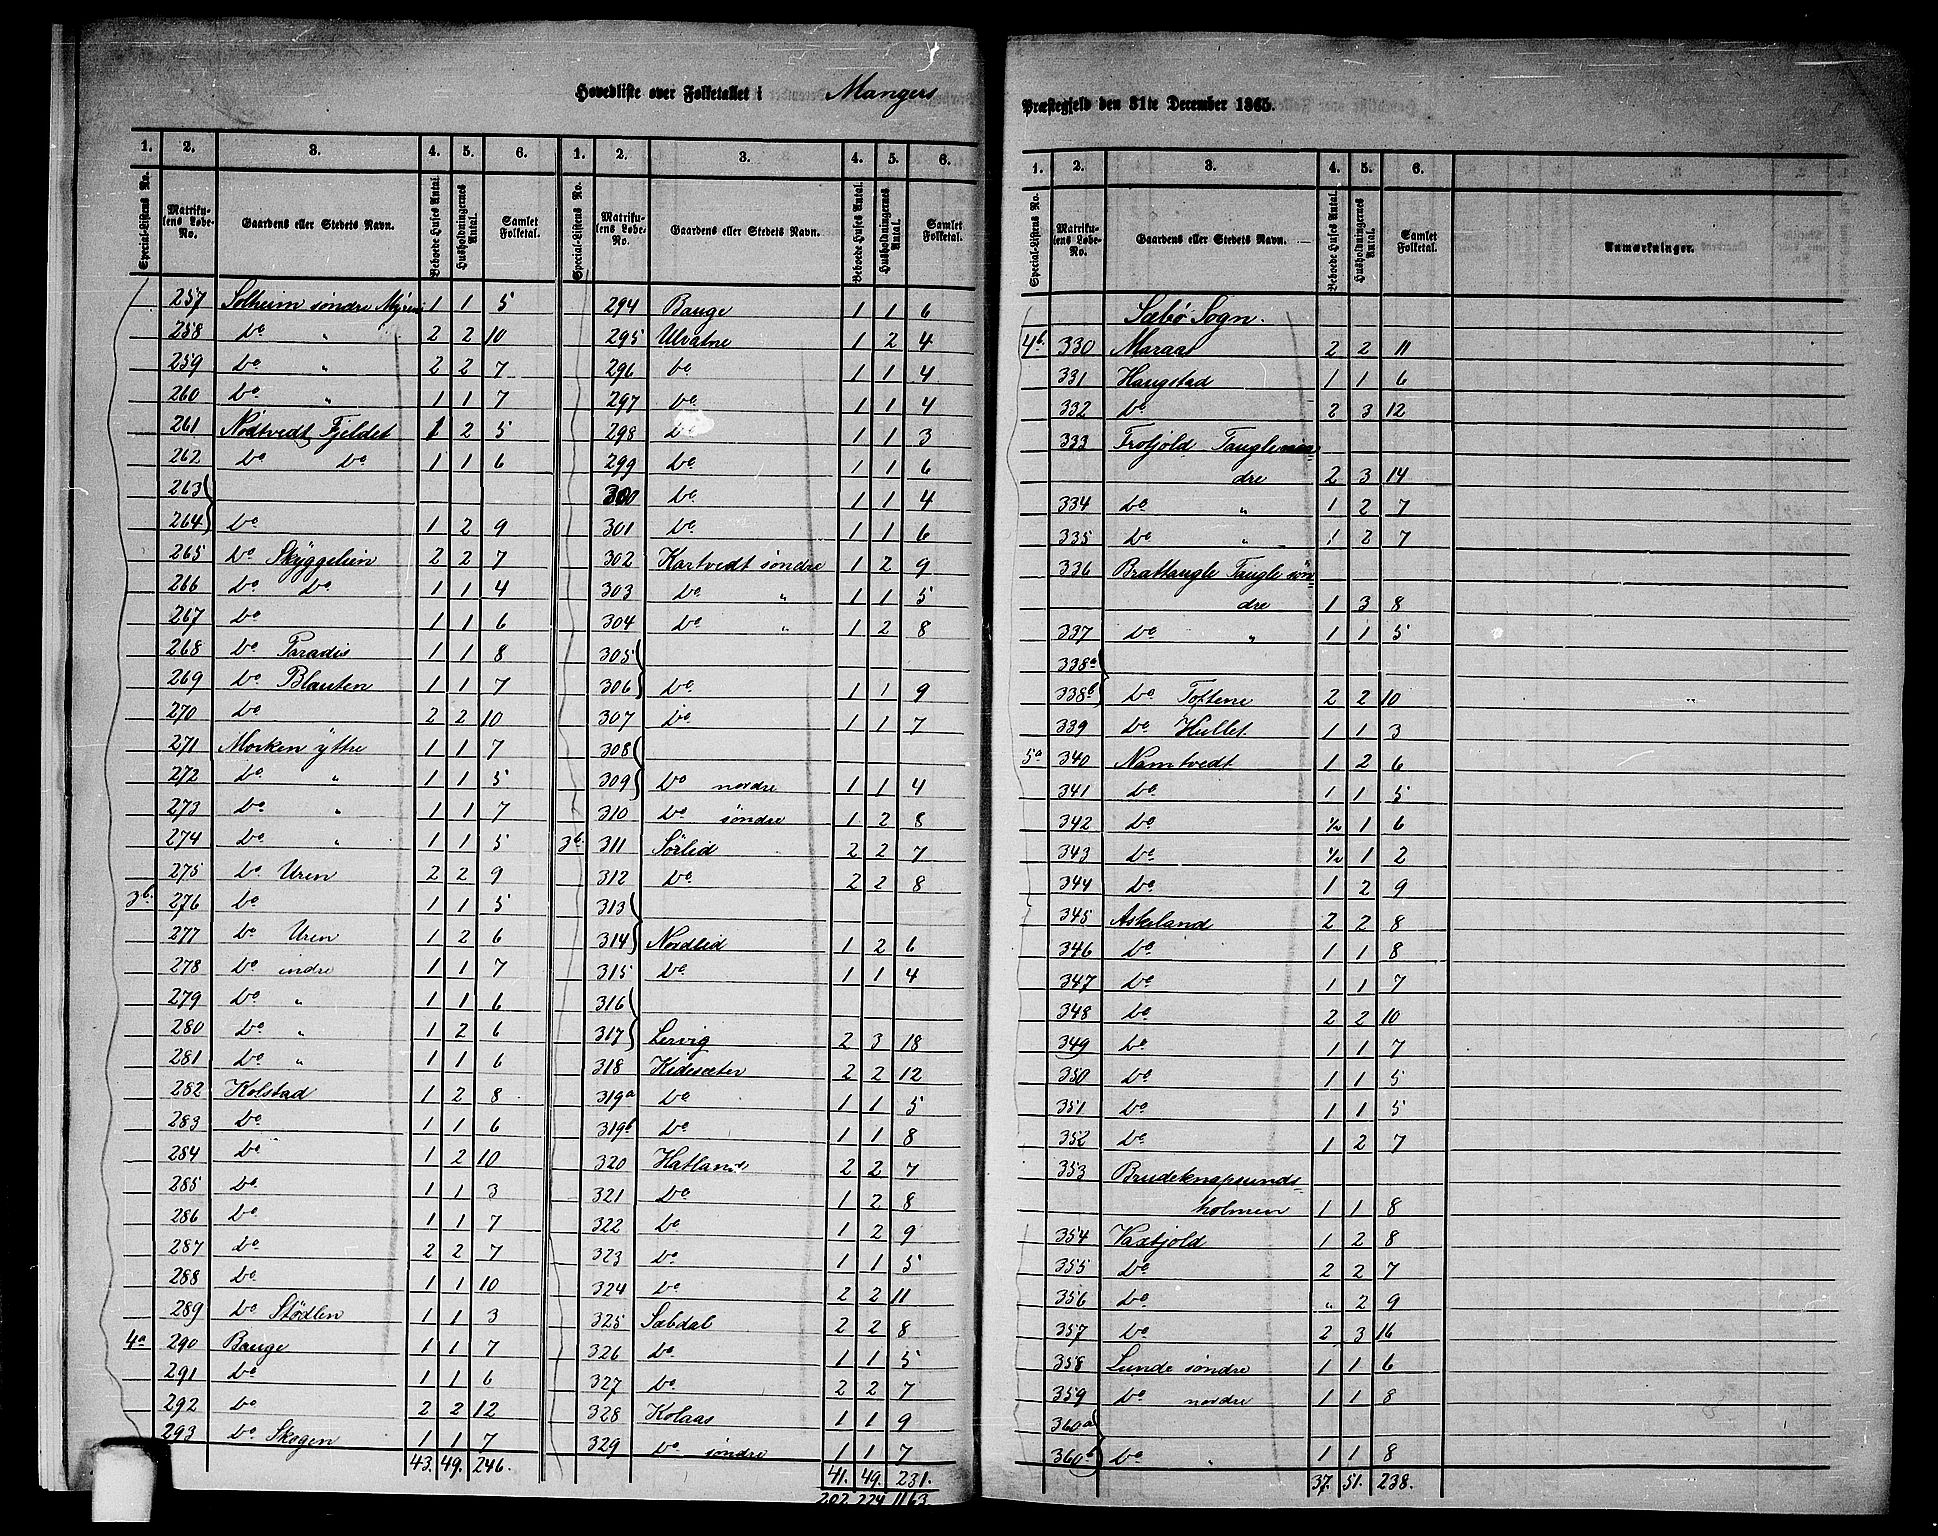 Hovedliste over Folketallet i Mangers
1. 2. 3. 4. 5. 6. 1. 2. 3. 4. 5. 6.
Special-Listens No. Matrikulens Løbe-No. Gaardens eller Stedets Navn. Beboede Huses Antal. Husholdningernes Antal. Samlet Folketal. Special-Listens No. Matrikulens Løbe-No. Gaardens eller Stedets Navn. Beboede Huses Antal. Husholdningernes Antal. Samlet Folketal.
257 Solheim søndre 1 1 5
258 Do " 2 2 10
259 Do " 2 2 7
260 Do " 1 1 7
261 Nödtvedt Fjeldet 1 2 5
262 Do Do 1 1 6
263
264 Do 1 2 9
265 Do Skyggelien 2 2 7
266 Do Do 1 1 4
267 Do 1 1 6
268 Do Paradis 1 1 8
269 Do Blauten 1 1 7
270 Do 2 2 10
271 Morken yttre 1 1 7
272 Do " 1 1 5
273 Do " 1 1 7
274 Do " 1 1 5
275 Do Uren 2 2 9
3b. 276 Do 1 1 5
277 Do Uren 1 2 6
278 Do indre 1 1 7
279 Do " 1 1 6
280 Do " 1 2 6
281 Do " 1 1 6
282 Kolstad 1 2 8
283 Do 1 1 6
284 Do 1 2 10
285 Do 1 1 3
286 Do 1 1 7
287 Do 2 2 7
288 Do 1 1 10
289 Do Stødlen 1 1 3
4a 290 Bauge 1 1 7
291 Do 1 1 6
292 Do 2 2 12
293 Do Skogen 1 1 7
43. 49. 246.
294 Bauge 1 1 6
295 Ulvatne 1 2 4
296 Do 1 1 4
297 Do 1 1 4
298 Do 1 1 3
299 Do 1 1 6
300 Do 1 1 4
301 Do 1 1 6
302 Kartvedt søndre 1 2 9
303 Do " 1 1 5
304 Do " 1 2 8
305
306 Do 1 1 9
307 Do 1 1 7
308
309 Do nordre 1 1 4
310 Do søndre 1 2 8
3b. 311 Sørlid 2 2 7
312 Do 2 2 8
313
314 Nordlid 1 2 6
315 Do 1 1 4
316
317 Lervig 2 3 18
318 Kidesæter 2 2 12
319a Do 1 1 5
319b Do 1 1 8
320 Hatland 2 2 7
321 Do 1 2 8
322 Do 1 2 9
323 Do 1 1 5
324 Do 2 2 11
325 Sæbdal 2 2 8
326 Do 1 1 5
327 Do 2 2 7
328 Kolaas 1 1 9
329 Do søndre 1 1 7
41. 49. 231.
202 224 1163
Præstegjeld den 31te December 1865.
1. 2. 3. 4. 5. 6.
Special-Listens No. Matrikulens Løbe-No. Gaardens eller Stedets Navn. Beboede Huses Antal. Husholdningernes Antal. Samlet Folketal. Anmærkninger.
Sæbø Sogn.
4b. 330 Maraas 2 2 11
331 Haugstad 1 1 6
332 Do 2 3 12
333 Frotjold
dre 2 3 14
334 Do " 1 2 7
335 Do " 1 2 7
336 Brattaugle Taugle søn
dre 1 3 8
337 Do " 1 1 5
338a
338b Do Toftene 2 2 10
339 Do Hullet 1 1 3
5a 340 Namtvedt 1 2 6
341 Do 1 1 5
342 Do 1/2 1 6
343 Do 1/2 1 2
344 Do 1 2 9
345 Askeland 2 2 8
346 Do 1 1 8
347 Do 1 1 7
348 Do 2 2 10
349 Do 1 1 7
350 Do 1 1 5
351 Do 1 1 5
352 Do 1 2 7
353 Brudeknapsunds-
holmen 1 1 8
354 Vaxtjold 1 2 8
355 Do 2 2 7
356 Do " 2 9
357 Do 2 3 16
358 Lunde søndre 1 1 6
359 Do nordre 1 1 8
360a
360b Do " 1 1 8
37. 51. 238.